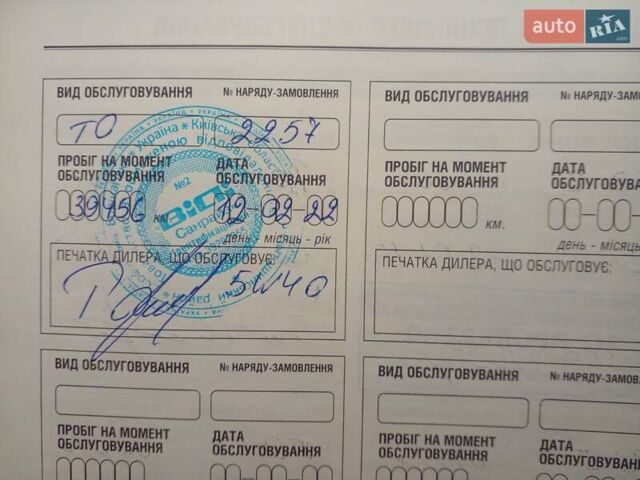 auto RIA .com
ВИД ОБСЛУГОВУВАННЯ № НАРЯДУ-ЗАМОВЛЕННЯ
ТО 2257
ПРОБІГ НА МОМЕНТ ОБСЛУГОВУВАННЯ ДАТА ОБСЛУГОВУВАННЯ
39456 км. 12-02-22
день - місяць - рік
ПЕЧАТКА ДИЛЕРА, ЩО ОБСЛУГОВУЄ:
5W40
Україна * Київська
№2
ВіДі
ВИД ОБСЛУГОВУВАННЯ № НАРЯДУ-ЗАМОВЛ
ПРОБІГ НА МОМЕНТ ОБСЛУГОВУВАННЯ ДАТА ОБСЛУГОВУ
км.
день - місяць
ПЕЧАТКА ДИЛЕРА, ЩО ОБСЛУГОВУЄ:
ВИД ОБСЛУГОВУВАННЯ № НАРЯДУ-ЗАМОВЛЕННЯ
ПРОБІГ НА МОМЕНТ ОБСЛУГОВУВАННЯ ДАТА ОБСЛУГОВУВАННЯ
ВИД ОБСЛУГОВУВАННЯ № НАРЯДУ-ЗАМОВЛ
ПРОБІГ НА МОМЕНТ ОБСЛУГОВУВАННЯ ДАТА ОБСЛУГОВУ